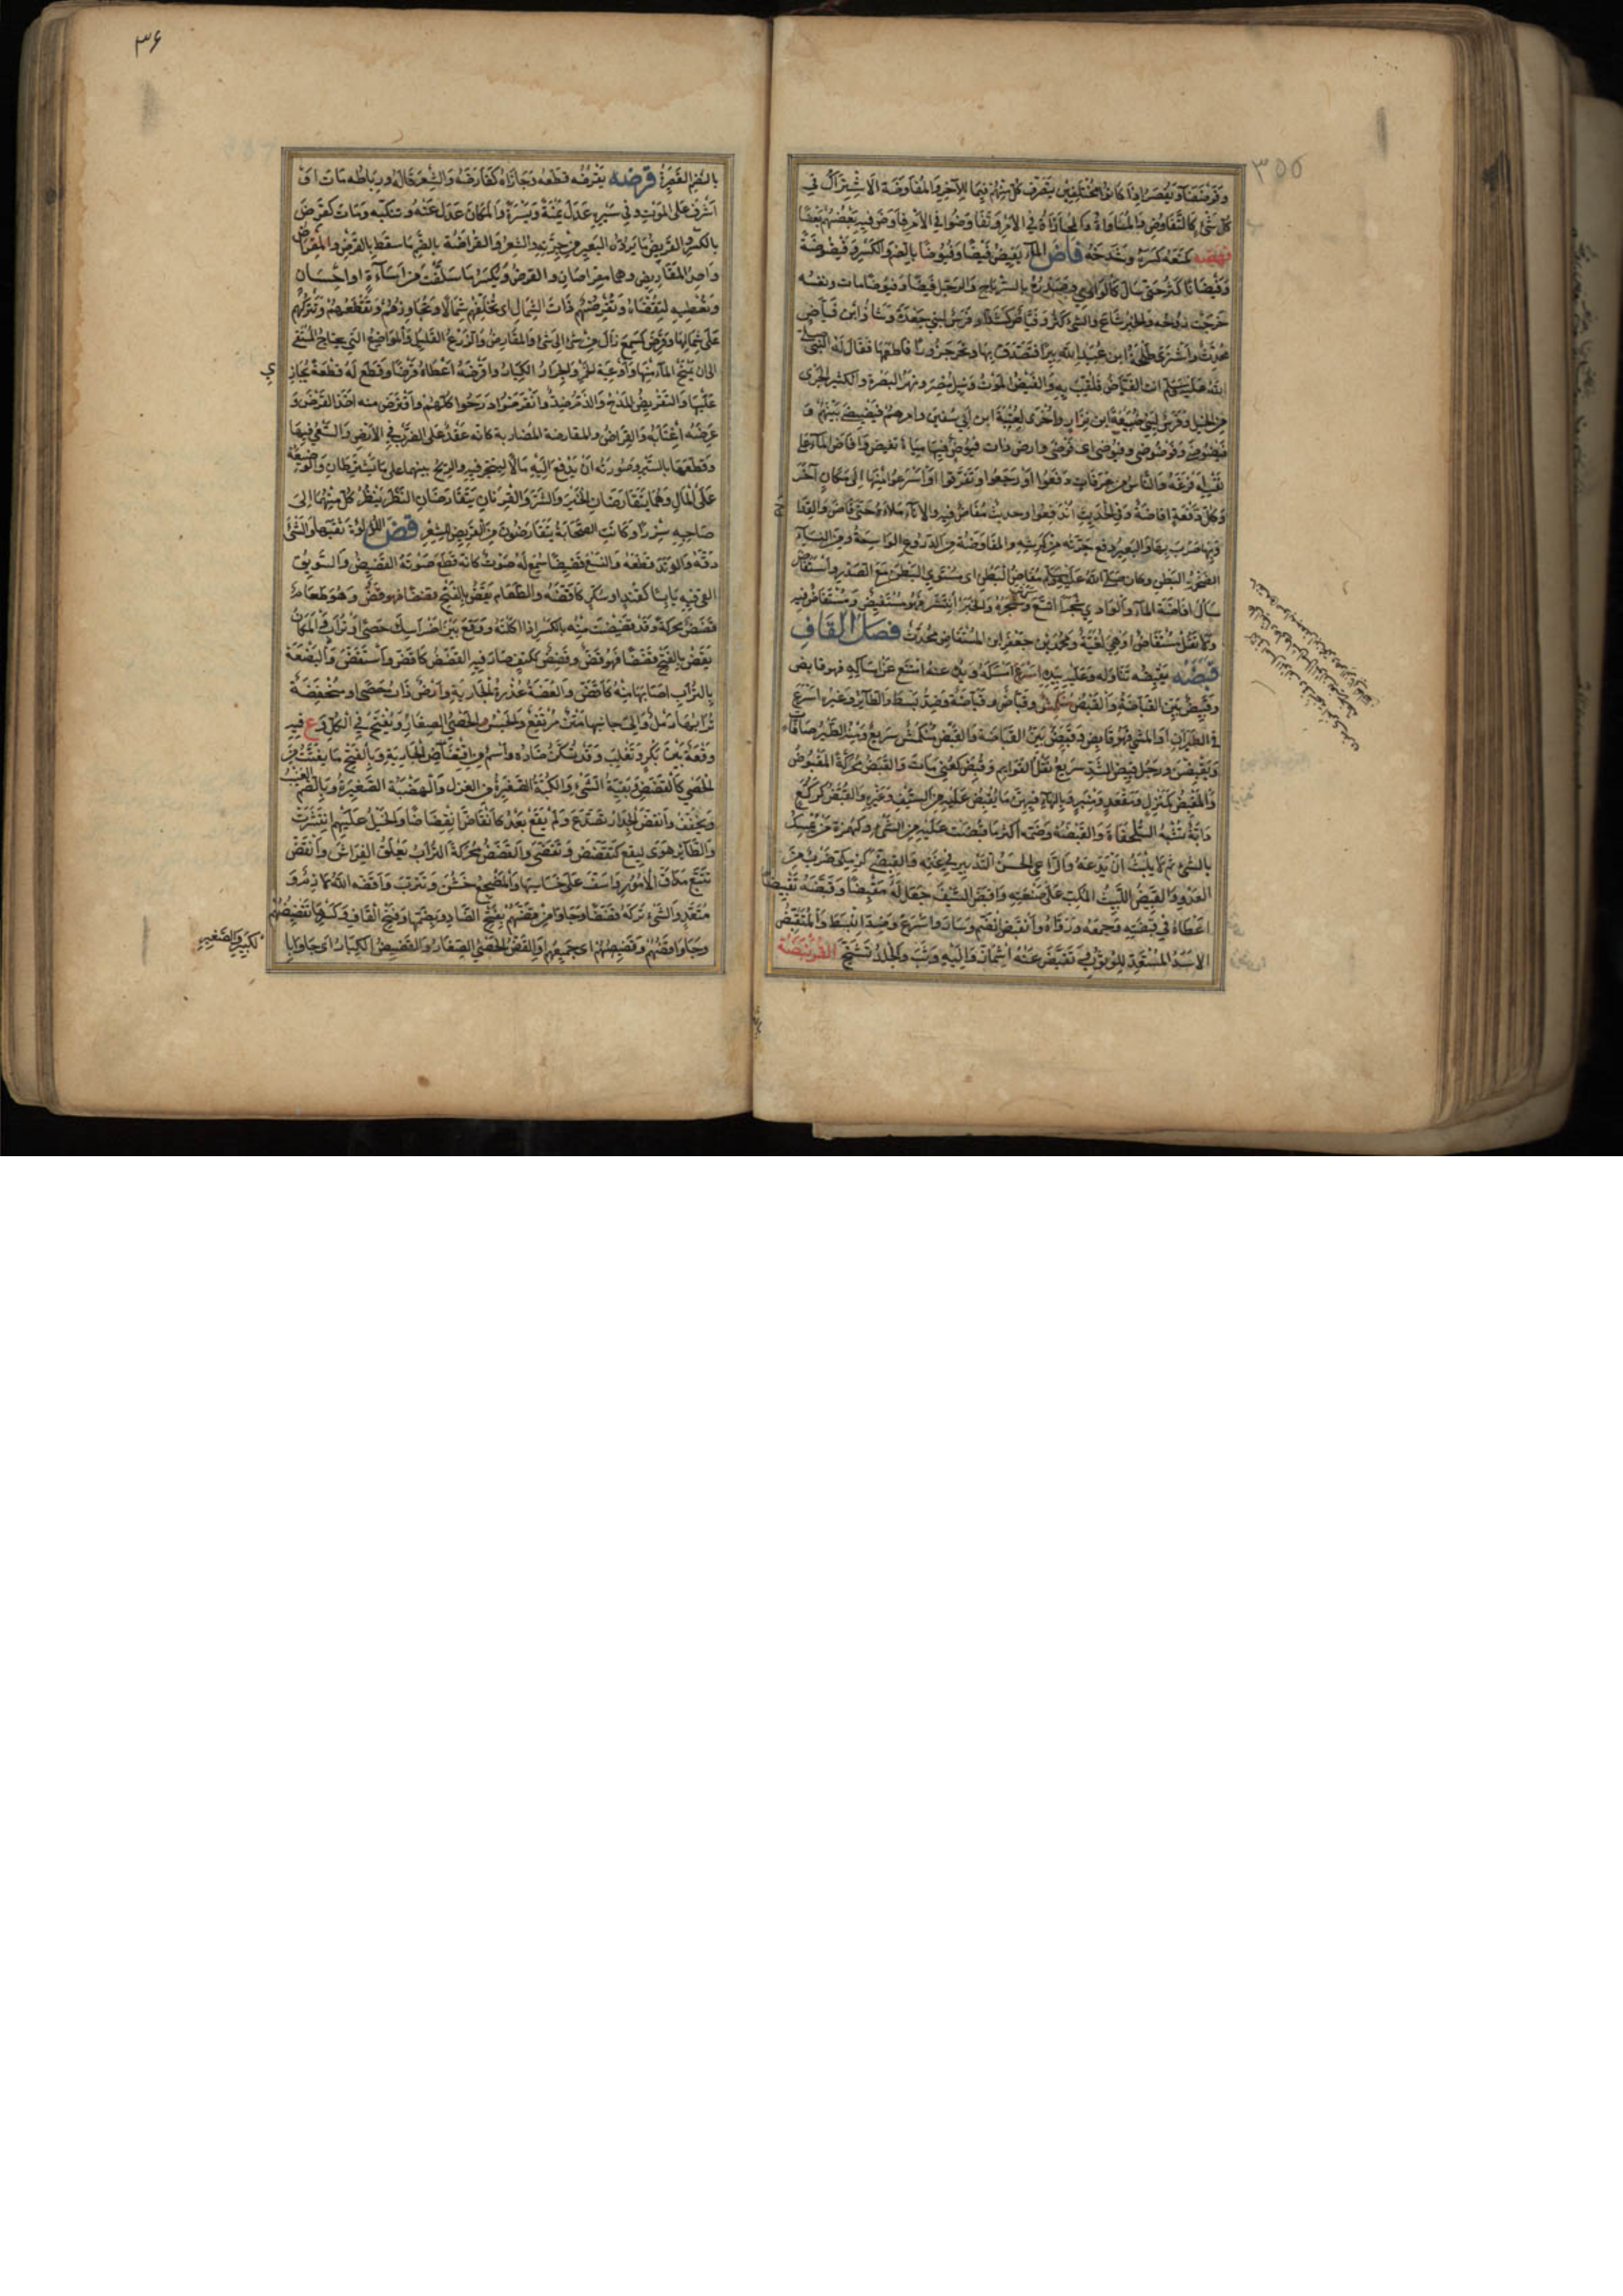 ٣٥٥
وفوضضا ويقصر اذا كانوا مختلطين يتصرف كل منهم فيما للآخر والمفاوضة الاشتراك في
كل شيء كالتفاوض والمساواة والمجاراة في الامر وتفاوضوا في الامر فاوض فيه بعضهم بعضا
فهضه كمنعه كسره وشدخه فاض الماء يفيض فيضا وفيوضا بالضم والكسر وفيضوضة
وفيضانا كثر حتى سال كالوادي وصدره بالسر باح والرجل فيضا وفيوضا مات ونفسه
خرجت روحه والخبر شاع والشيء كثر وفياض كشداد فرس لبني جعدة وشاذ ابن فياض
محدث واشترى طلحة ابن عبيد الله بيرا فتصدق بها ونحر جزورا فاطعمها فقال له النبي صلى
الله عليه وسلم انت الفياض فلقب به والفيض الموت ونيل مصر ونهر البصرة والكثير الجري
من الخيل وفرس لبني ضبيعة ابن نزار واخرى لعتبة ابن ابي سفين وامرهم فيضيضى بينهم و
فيضوضى وفوضوضى وفيوضى اى فوضى وارض ذات فيوض فيها مياه تفيض وافاض الماء على
نفسه افرغه والناس من عرفات دفعوا او رجعوا وتفرقوا او اسرعوا منها الى مكان آخر
وكل دفعة افاضة وفي الحديث اندفعوا وحديث مفاض فيه والاناء ملاه حتى فاض والقداح
وبها ضرب بها والبعير دفع جرته من كرشه والمفاوضة من الدروع الواسعة ومن النساء
الضخمة البطن وكان صلى الله عليه وسلم مفاض البطن اى مستوي البطن مع الصدر واستفاض
سال افاضة الماء والوادي شجرا اتسع وكثر شجره والخبر انتشر فهو مستفيض ومستفاض فيه
ولا تقل مستفاض او هي لغية ومحمد بن جعفر ابن المستفاض محدث فصل القاف
قبضه يقبضه تناوله وعليه بيده امسكه ويده عنه امتنع عن امساكه فهو قابض
وقبيض بين القباضة والقبض منكمش وقباض وقباضة وضد بسط والطاير وغيره اسرع
في الطيران او المشي فهو قابض وقبيض بين القباضة والقبض منكمش سريع ومنه الطير صافات
ويقبضن ورجل قبيض الشد سريع نقل القوايم وقبض كعني مات والقبض محركة المقبوض
والمقبض كمنزل ومقعد ومنبر وبالهاء فيهن ما يقبض عليه من السيف وغيره والقبض كركع
دابة تشبه السلحفاة والقبضة وضمه اكثر ما قبضت عليه من الشيء وكهمزة من يمسك
بالشيء ثم لا يلبث ان يدعه والراعي الحسن التدبير في غنمه والقبضى كزمكى ضرب من
العدو والقبيض اللبيث المكب على صنعته واقبض السيف جعل له مقبضا وقبضه تقبيضا
اعطاه في قبضته وجمعه وزواه وانقبض انضم وسار واسرع وضد انبسط والمنقبض
الاسد المستعد للوثوب وتقبض عنه اشماز واليه وثب والجلد تشنج القرنبضة
٣٦
بالضم القصيرة قرضه يقرضه قطعه وجازاه كقارضه والشعر قاله ورباطه مات او
اشرف على الموت وفي سيره عدل يمنة ويسرة والمكان عدل عنه وتنكبه ومات كقرض
بالكسر والقريض ما يرده البعير من جرته والشعر والقراضة بالضم ما سقط بالقرض والمقراض
واحد المقاريض وهما مقراضان والقرض ويكسر ما سلفت من اساءة او احسان
وتعطيه لتقضاه وتقرضهم ذات الشمال اى تخلفهم شمالا وتجاوزهم وتقطعهم وتتركهم
على شمالها وقرض كسمع زال من شيء الى شيء والمقارض الزرع القليل والمواضع التي يحتاج المستقي
الى ان يمتح الماء منها واوعية الخمر والجرار الكبار واقرضه اعطاه قرضا وقطع له قطعة يجازي
عليها والتقريض المدح والذم ضد وانقرضوا درجوا كلهم واقترض منه اخذ القرض و
عرضه اغتابه والقراض والمقارضة المضاربة كانه عقد على الضرب في الارض والسعي فيها
وقطعها بالسير وصورته ان يدفع اليه مالا ليتجر فيه والربح بينهما على ما يشترطان والوضيعة
على المال وهما يتقارضان الخير والشر والقرنان يتقارضان النظر ينظر كل منهما الى
صاحبه شزرا وكانت الصحابة يتقارضون من القريض الشعر قض اللؤلؤة ثقبها والشيء
دقه والوتد قطعه والنسع قضيضا سمع له صوت كانه قطع صوته القضيض والسويق
القى فيه يابسا كقند او سكر كاقضه والطعام يقض بالفتح قضضا فهو قض وهو طعام
قضض محركة وقد قضضت منه بالكسر اذا اكلته ووقع بين اضراسك حصى او تراب والمكان
يقض بالفتح قضضا فهو قض وقضض ككتف صار فيه القضض كاقض واستقض والبضعة
بالتراب اصابها منه كاقض والقضة عذرة الجارية وارض ذات حصى او منخفضة
ترابها رمل والى جانبها متن مرتفع والجنس والحصى الصغار ويفتح في الكل وع فيه
وقعة بين بكر وتغلب وقد تسكن ضاده واسم من اقتضاض الجارية وبالفتح ما يفتت من
الحصى كالقضض وبقية الشيء والكبة الصغيرة من الغزل والهضبة الصغيرة وبالضم العيب
ويخفف وانقض الجدار تصدع ولم يقع بعد كانقاض انقضاضا والخيل عليهم انتشرت
والطاير هوى ليقع كتقضض وتقضى والقضض محركة التراب يعلو الفراش واقض
تتبع مداق الامور واسف على خسايسها والمضجع خشن وتترب واقضه الله لازم و
متعد والشيء تركه قضضا وجاؤا قضهم بفتح الضاد وبضمها وفتح القاف وكسرها بقضيضهم
وجاؤا قضضهم وقضيضهم اى جميعهم او القض الحصى الصغار والقضيض الكبار اى جاؤا با
لكبير والصغير